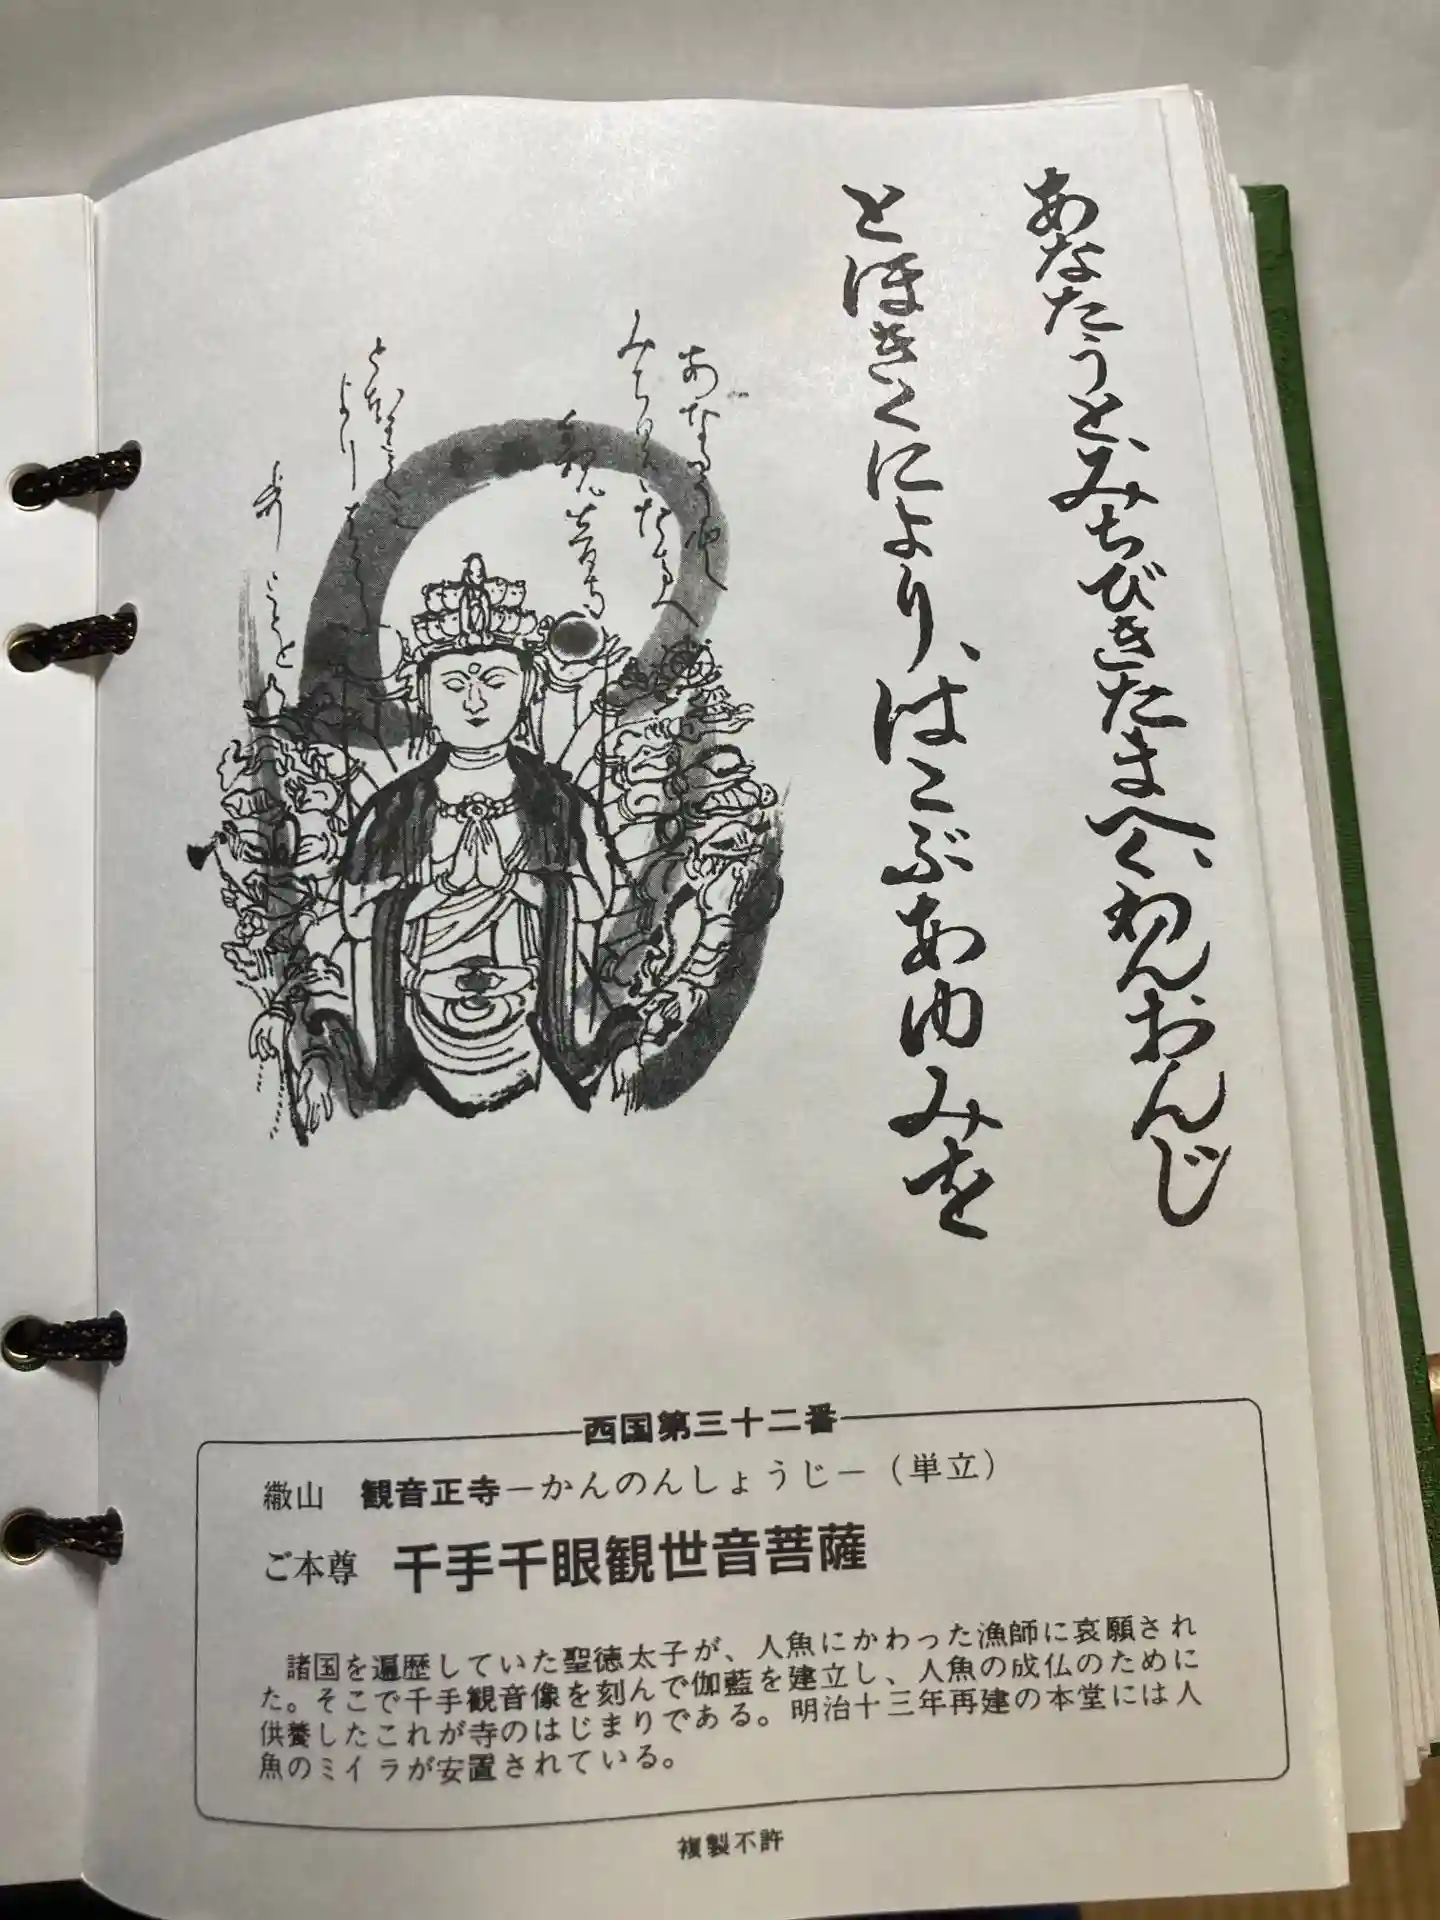 あなたうと、みちびきたまへ、くわんおんじ
とほきくにより、はこぶあゆみを
西国第三十二番
繖山 観音正寺－かんのんしょうじ－（単立）
ご本尊 千手千眼観世音菩薩
諸国を遍歴していた聖徳太子が、人魚にかわった漁師に哀願され
た。そこで千手観音像を刻んで伽藍を建立し、人魚の成仏のために
供養したこれが寺のはじまりである。明治十三年再建の本堂には人
魚のミイラが安置されている。
複製不許